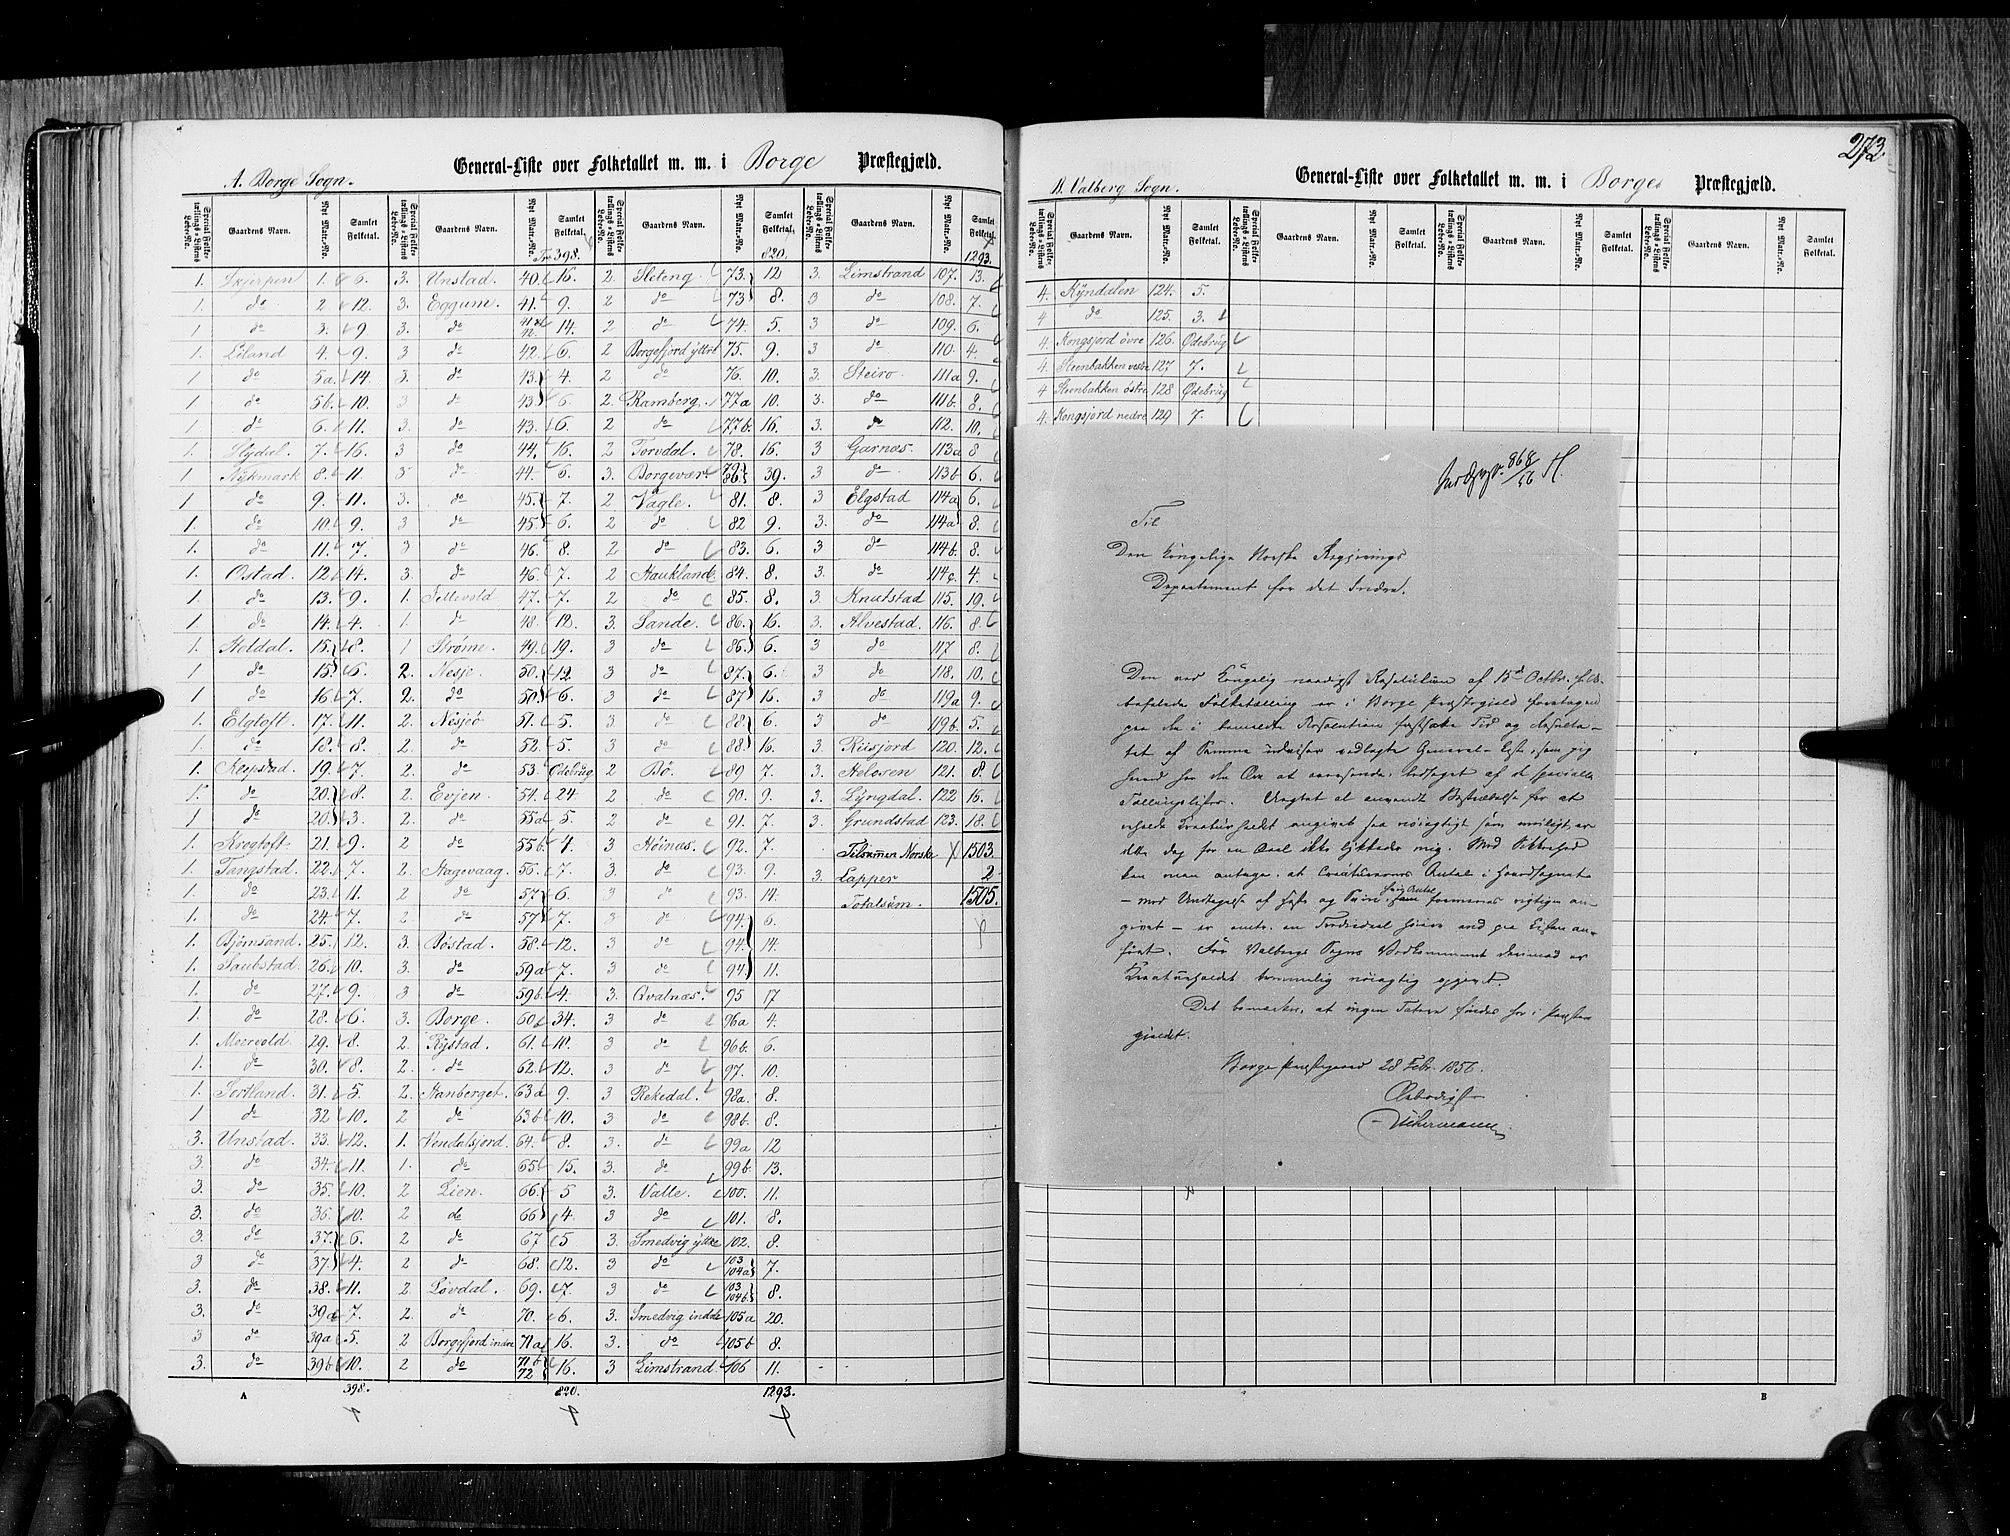 General-Liste over Folketallet m. m. i Borge Præstegjæld.
A. Borge Sogn.
Special Folketællings-Listens Løbe-No. Gaardens Navn. Nyt Matr.-No. Samlet Folketal. Special Folketællings-Listens Løbe-No. Gaardens Navn. Nyt Matr.-No. Samlet Folketal. Special Folketællings-Listens Løbe-No. Gaardens Navn. Nyt Matr.-No. Samlet Folketal. Special Folketællings-Listens Løbe-No. Gaardens Navn. Nyt Matr.-No. Samlet Folketal.
398. 820. 1293.
1. Skjerpen 1. 6. 3. Unstad 40. 16. 2. Sleteng 73. 12 3. Limstrand 107. 13.
1. do 2 12. 3. Eggum. 41. 9. 2 do 73 8. 3 do 108. 7.
1 do 3. 9 3. do 41 42. 14. 2 do 74. 5. 3 do 109. 6.
1. Liland 4. 9. 3 do 42. 6. 2 Borgefjord yttre 75. 9. 3 do 110. 4.
1 do 5a. 14. 3. do 43. 4. 2 do 76. 10. 3. Steiro. 111a 9.
1. do 5b. 10. 3 do 43 6. 2. Ramberg. 77a 10. 3. do 111b. 8.
1. do 6. 11. 3. do 43. 6. 2 do 77b. 16. 3. do 112. 10.
1. Slydal. 7. 16. 3. do 44. 16. 2 Torvdal. 78. 16. 3 Garnæs. 113a 8
1 Nykmark 8. 11 3 do 44. 6. 3. Borgevær 79 86. 39. 3 do 113b 6.
1 do 9. 11. 3. do 45. 7. 2 Vagle. 81. 8. 3 Elgstad 114a 6.
1. do 10. 9. 3 do 45. 6. 2 do 82 9. 3. do 114a 8.
1. do 11. 7. 3 do 46. 8. 2 do 83. 6. 3 do 114b. 8.
1. Ostad. 12 14. 3. do 46. 7. 2 Haukland 84. 8. 3. do 114c. 4.
1. do 13. 9. 1. Tellevold 47. 7. 2 do 85. 8. 3. Knutstad 115. 19.
1. do 14. 4. 1. do 48. 12. 3. Sande. 86. 16. 3. Alvestad. 116. 8
1. Heldal. 15. 8. 1 Strøme. 49. 19. 3 do 86. 6. 3 do 117 8.
1 do 15. 6. 2. Nesje. 50. 12. 3 do 87. 6. 3 do 118. 10.
1 do 16 7. 2. do 50. 6. 3 do 87 16. 3 do 119a 9.
1. Elgtoft. 17. 11. 2. Nesjeö 51. 5. 3 do 88 6. 3 do 119b. 5.
1. do 18. 8. 2. do 52. 5. 3 do 88. 16. 3. Riisjord 120. 12.
1. Repstad. 19. 7. 2. do 53. Ødebrug 2 Bö. 89 7. 3. Helosen 121. 8.
1. do 20. 8. 2. Evjen. 54. 24. 2 do 90. 9. 3. Lyngdal. 122 16.
1 do 20. 3. 2. do 55a 5. 2 do 91. 7. 3. Grundstad 123. 18.
1. Krogtoft 21. 9. 2 do 55b. 4. 3 Höinæs. 92. 7. Tilsammen Norske 1503.
1. Tangstad. 22. 7. 2 Hagevaag. 56. 7. 3. do 93. 9. 3. Lapper 2
1. do 23. 11. 2 do 57. 6. 3 do 93. 14. Totalsum. 1505.
1. do 24. 7. 2 do 57 7. 3 do 94. 6.
1. Björnsand. 25. 12. 3. Böstad. 58. 12. 3 do 94. 14.
1. Saubstad. 26. 10. 3. do 59a 7. 3 do 94. 11.
1. do 27. 9. 3 do 59b. 4. 3. Qvalnæs. 95 17
1. do 28. 6. 3. Borge. 60 34. 3 do 96a 4.
1. Meervold. 29. 8. 2. Rystad. 61. 10. 3 do 96b. 6.
1. do 30. 8. 2. do 62. 12. 3 do 97. 10.
1. Sortland. 31. 5. 2. Hanberget. 63a 9. 3 Rekedal. 98a. 8.
1 do 32 10. 2 do 63b 10. 3 do 98b. 8.
3. Unstad. 33. 12. 1. Vendalsjord. 64. 8. 3. do 99a 12
3. do 34. 11. 1. do 65 15. 3. do 99b. 13.
3. do 35. 10. 2 Lien. 66. 5 3. Valle. 100. 11.
3. do 36. 10. 2 do 66 4. 3 do 101. 8.
3. do 37. 6. 2 do 67 5 3. Smedvig yttre 102. 8.
3 do 37. 4. 2 do 68. 12. 3 do 103 104a 7.
3. do 38. 11. 2. Lövdal. 69. 7. 3 do 103 104b. 8.
3. do 39a 7. 2. do 70. 6. 3. Smedvig indre 105a 20.
3 do 39a 5. 2 Borgefjord indre 71a 16. 3. do 105b 8.
3. do 39b 10. 2 do 71b 72 16. 3 Limstrand. 106 11.
A 398. 820. 1293.
273.
General-Liste over Folketallet m. m. i Borge Præstegjæld.
B. Valberg Sogn.
Special Folketællings-Listens Løbe-No. Gaardens Navn. Nyt Matr.-No. Samlet Folketal. Special Folketællings-Listens Løbe-No. Gaardens Navn. Nyt Matr.-No. Samlet Folketal. Special Folketællings-Listens Løbe-No. Gaardens Navn. Nyt Matr.-No. Samlet Folketal. Special Folketællings-Listens Løbe-No. Gaardens Navn. Nyt Matr.-No. Samlet Folketal.
4. Kyndalen 124. 5.
4 do 125. 3.
4. Kongsjord övre 126. Ødebrug
4. Steenbakken vestre 127 7.
4 Steenbakken östre 128 Ødebrug
4. Kongsjord nedre 129 7.
868/56
Til
Den Kongelige Norske Regjerings
Departement for det Indre.
Den ved Kongelig naadigst Resolution af 15d Octbr.
befalede Folketælling er i Borge Præstegjeld foretagen
paa den i bemeldte Resolution fastsatte Tid og Resulta-
tet af Samme udviser vedlagte General-Liste, som jeg
herved har den Ære at oversende, ledsaget af de specielle
Tællingslister. Uagtet al anvendt Bestræbelse for at
erholde Creaturholdet angivet saa nöiagtigt som muligt, er
dette dog for en Deel ikke lykkedes mig. Med Sikkerhed
kan man antage, at Creaturernes Antal i Hovedsognet
- med Undtagelse af Heste og Sviin, hvis Antal
givet - er omtr. en Trediedeel höiere end paa Listen an-
fört. For Valbergs Sogns Vedkommende derimod er
Creaturholdet temmelig nöiagtig opgivet.
Det bemærkes, at ingen Tatere findes her i Præste-
gjeldet.
Borge Præstegaard 28 Febr. 1856.
Ærbödigst
B